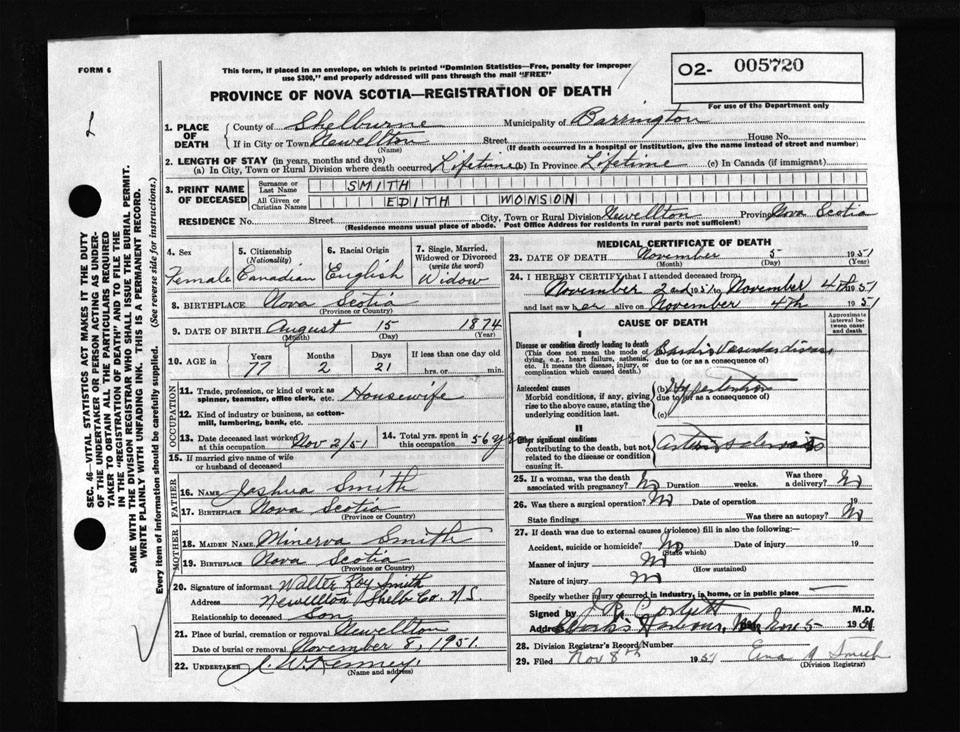 FORM 6
This form, if placed in an envelope, on which is printed "Dominion Statistics—Free, penalty for improper
use $300," and properly addressed will pass through the mail "FREE"
O2- 005720
For use of the Department only
PROVINCE OF NOVA SCOTIA—REGISTRATION OF DEATH
SEC. 46—VITAL STATISTICS ACT MAKES IT THE DUTY
OF THE UNDERTAKER OR PERSON ACTING AS UNDER-
TAKER TO OBTAIN ALL THE PARTICULARS REQUIRED
IN THE "REGISTRATION OF DEATH" AND TO FILE THE
SAME WITH THE DIVISION REGISTRAR WHO SHALL ISSUE THE BURIAL PERMIT.
WRITE PLAINLY WITH UNFADING INK. THIS IS A PERMANENT RECORD.
Every item of information should be carefully supplied. (See reverse side for instructions.)
1. PLACE OF DEATH
County of Shelburne Municipality of Barrington
If in City or Town Newellton Street House No.
(Name) (If death occurred in a hospital or institution, give the name instead of street and number)
2. LENGTH OF STAY (in years, months and days)
(a) In City, Town or Rural Division where death occurred Lifetime (b) In Province Lifetime (c) In Canada (if immigrant)
3. PRINT NAME OF DECEASED
Surname or Last Name SMITH
All Given or Christian Names EDITH WONSON
RESIDENCE No. Street City, Town or Rural Division Newellton Province Nova Scotia
(Residence means usual place of abode. Post Office Address for residents in rural parts not sufficient)
4. Sex
Female
5. Citizenship (Nationality)
Canadian
6. Racial Origin
English
7. Single, Married, Widowed or Divorced (write the word)
Widow
8. BIRTHPLACE Nova Scotia
(Province or Country)
9. DATE OF BIRTH August 15 1874
(Month) (Day) (Year)
10. AGE in Years Months Days If less than one day old
77 2 21 hrs. or min.
OCCUPATION
11. Trade, profession, or kind of work as
spinner, teamster, office clerk, etc. Housewife
12. Kind of industry or business, as cotton-
mill, lumbering, bank, etc.
13. Date deceased last worked
at this occupation Nov 2/51
14. Total yrs. spent in
this occupation 56 yrs
15. If married give name of wife
or husband of deceased
FATHER
16. NAME Joshua Smith
17. BIRTHPLACE Nova Scotia
(Province or Country)
MOTHER
18. MAIDEN NAME Minerva Smith
19. BIRTHPLACE Nova Scotia
(Province or Country)
20. Signature of informant Walter Roy Smith
Address Newellton Shelb. Co. N.S.
Relationship to deceased Son
21. Place of burial, cremation or removal Newellton
Date of burial or removal November 8, 1951.
22. UNDERTAKER J. W. Kenney.
(Name and address)
MEDICAL CERTIFICATE OF DEATH
23. DATE OF DEATH November 5 1951
(Month) (Day) (Year)
24. I HEREBY CERTIFY that I attended deceased from
November 2nd 1951 to November 4th 1951
and last saw her alive on November 4th 1951
CAUSE OF DEATH
Approximate interval between onset and death
I
Disease or condition directly leading to death
(This does not mean the mode of dying, e.g., heart failure, asthenia, etc. It means the disease, injury, or complication which caused death.)
Cardio Vascular disease
due to (or as a consequence of)
Antecedent causes
Morbid conditions, if any, giving rise to the above cause, stating the underlying condition last.
(b) Hypertention
due to (or as a consequence of)
(c)
II
Other significant conditions
contributing to the death, but not related to the disease or condition causing it.
25. If a woman, was the death
associated with pregnancy? No Duration weeks. Was there a delivery? No
26. Was there a surgical operation? No Date of operation 19
State findings Was there an autopsy? No
27. If death was due to external causes (violence) fill in also the following:—
Accident, suicide or homicide? No Date of injury 19
(State which)
Manner of injury No
(How sustained)
Nature of injury No
Specify whether injury occurred in industry, in home, or in public place
Signed by M.D.
Address Clark's Harbour, Nov 5 1951
28. Division Registrar's Record Number
29. Filed Nov 8th 1951 Smith
(Division Registrar)